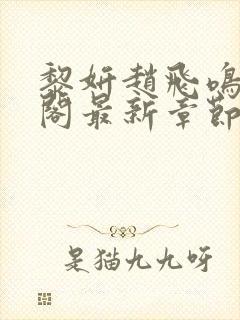 黎妍趙飛鳴
閣最新章節
是猫九九呀